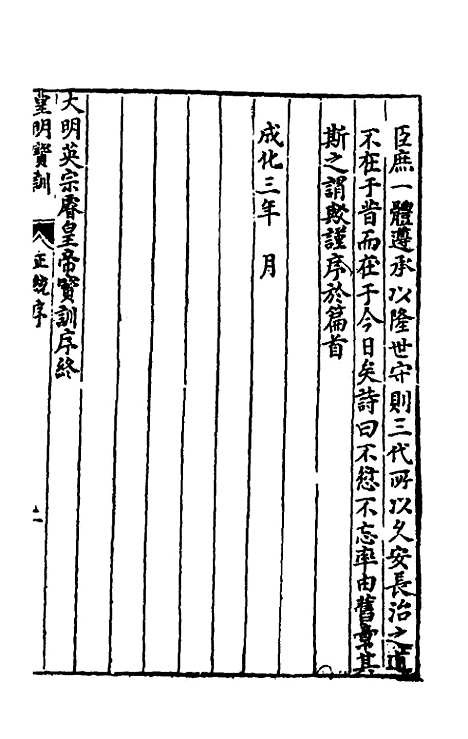 臣庶一體遵承以隆世守則三代所以久安長治之道
不在于昔而在于今日矣詩曰不愆不忘率由舊章其
斯之謂歟謹序於篇首
成化三年　月
大明英宗睿皇帝寶訓序終
皇明寶訓　正統序